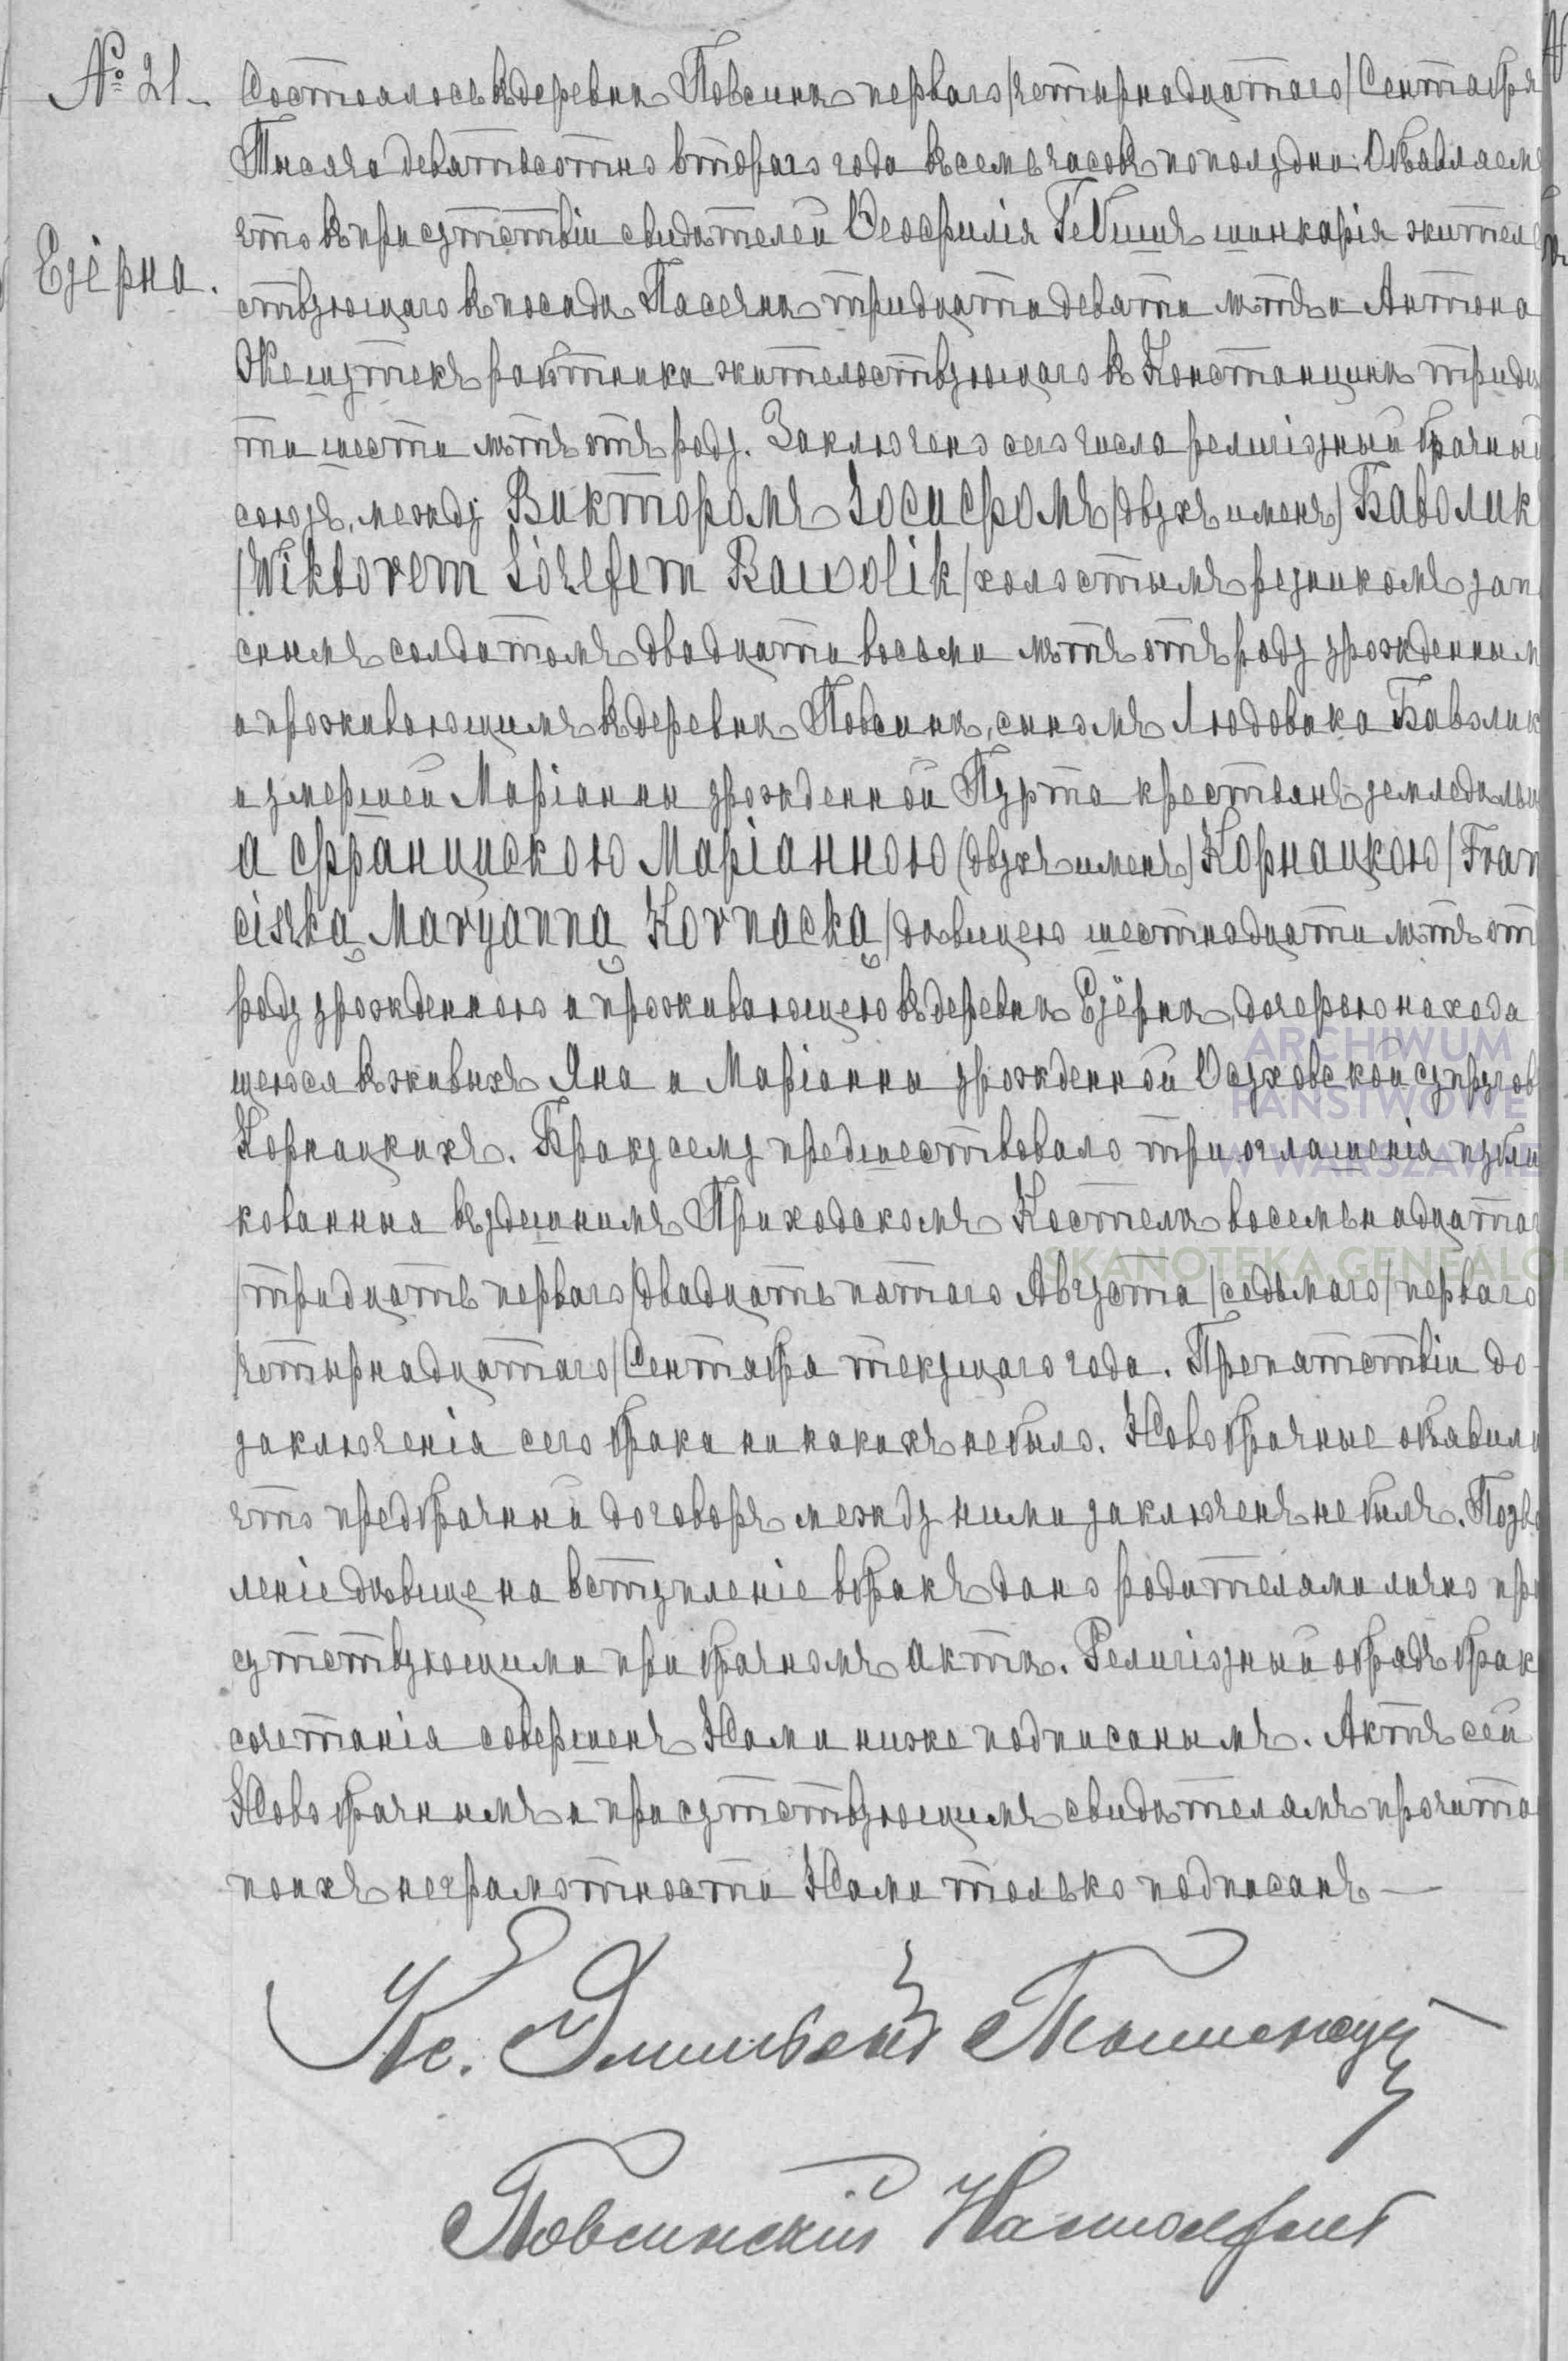 № 21.
Езiёрна.
Состоялось въ деревнѣ Повсинѣ перваго /четырнадцатаго/ Сентября
Тысяча девятьсотно втораго года въ семь часовъ пополудни. Объявляемъ
что въ присутствіи свидѣтелей Ѳеофилія шинкарія жител
ствующаго въ посадѣ Пасечнѣ тридцати девяти лѣтъ и Антона
работника жительствующаго въ Константинѣ тридц
ти шести лѣтъ отъ роду. Заключено сего числа религіозный брачный
союзъ, между Викторомъ Іосифомъ /двухъ именъ/ Баволик
/Wiktorem Józefem Bawolik/ холостымъ резникомъ зап
снымъ солдатомъ двадцати восьми лѣтъ отъ роду урожденным
и проживающимъ въ деревнѣ Повсинѣ, сыномъ Людовика Баволик
и умершей Маріанны урожденной Пурта крестьянъ земледѣльц
а Францишкою Маріанною (двухъ именъ) Корнацкою /Fran
ciszką Maryanną Kornacką/ дѣвицею шестнадцати лѣтъ от
роду урожденною и проживающею въ деревнѣ Езёрнѣ, дочерью находя
щеюся въ живыхъ Яна и Маріанны урожденной Осуховской супругов
Корнацкихъ. Браку сему предшествовало три оглашенія публи
кованныя въ здешнимъ Приходскомъ Костелѣ восемьнадцатаг
/тридцать перваго/ двадцать пятаго Августа /седьмаго/ перваго
/четырнадцатаго/ Сентября текущаго года. Препятствіи до
заключенія сего брака никакихъ небыло. Новобрачные объявили
что предбрачный договоръ между ними заключенъ небылъ. Позво
леніе дѣвице на вступленіе в бракъ дано родителями лично при
сутствующими при брачномъ актѣ. Религіозный обрядъ брак
сочетанія совершенъ Нами ниже подписанымъ. Актъ сей
Новобрачнымъ и присутствующимъ свидѣтелямъ прочита
по ихъ неграмотности Нами только подписанъ —
Кс.
Повсинскій Настоятель
ARCHIWUM
PAŃSTWOWE
W WARSZAWIE
SKANOTEKA.GENEALO